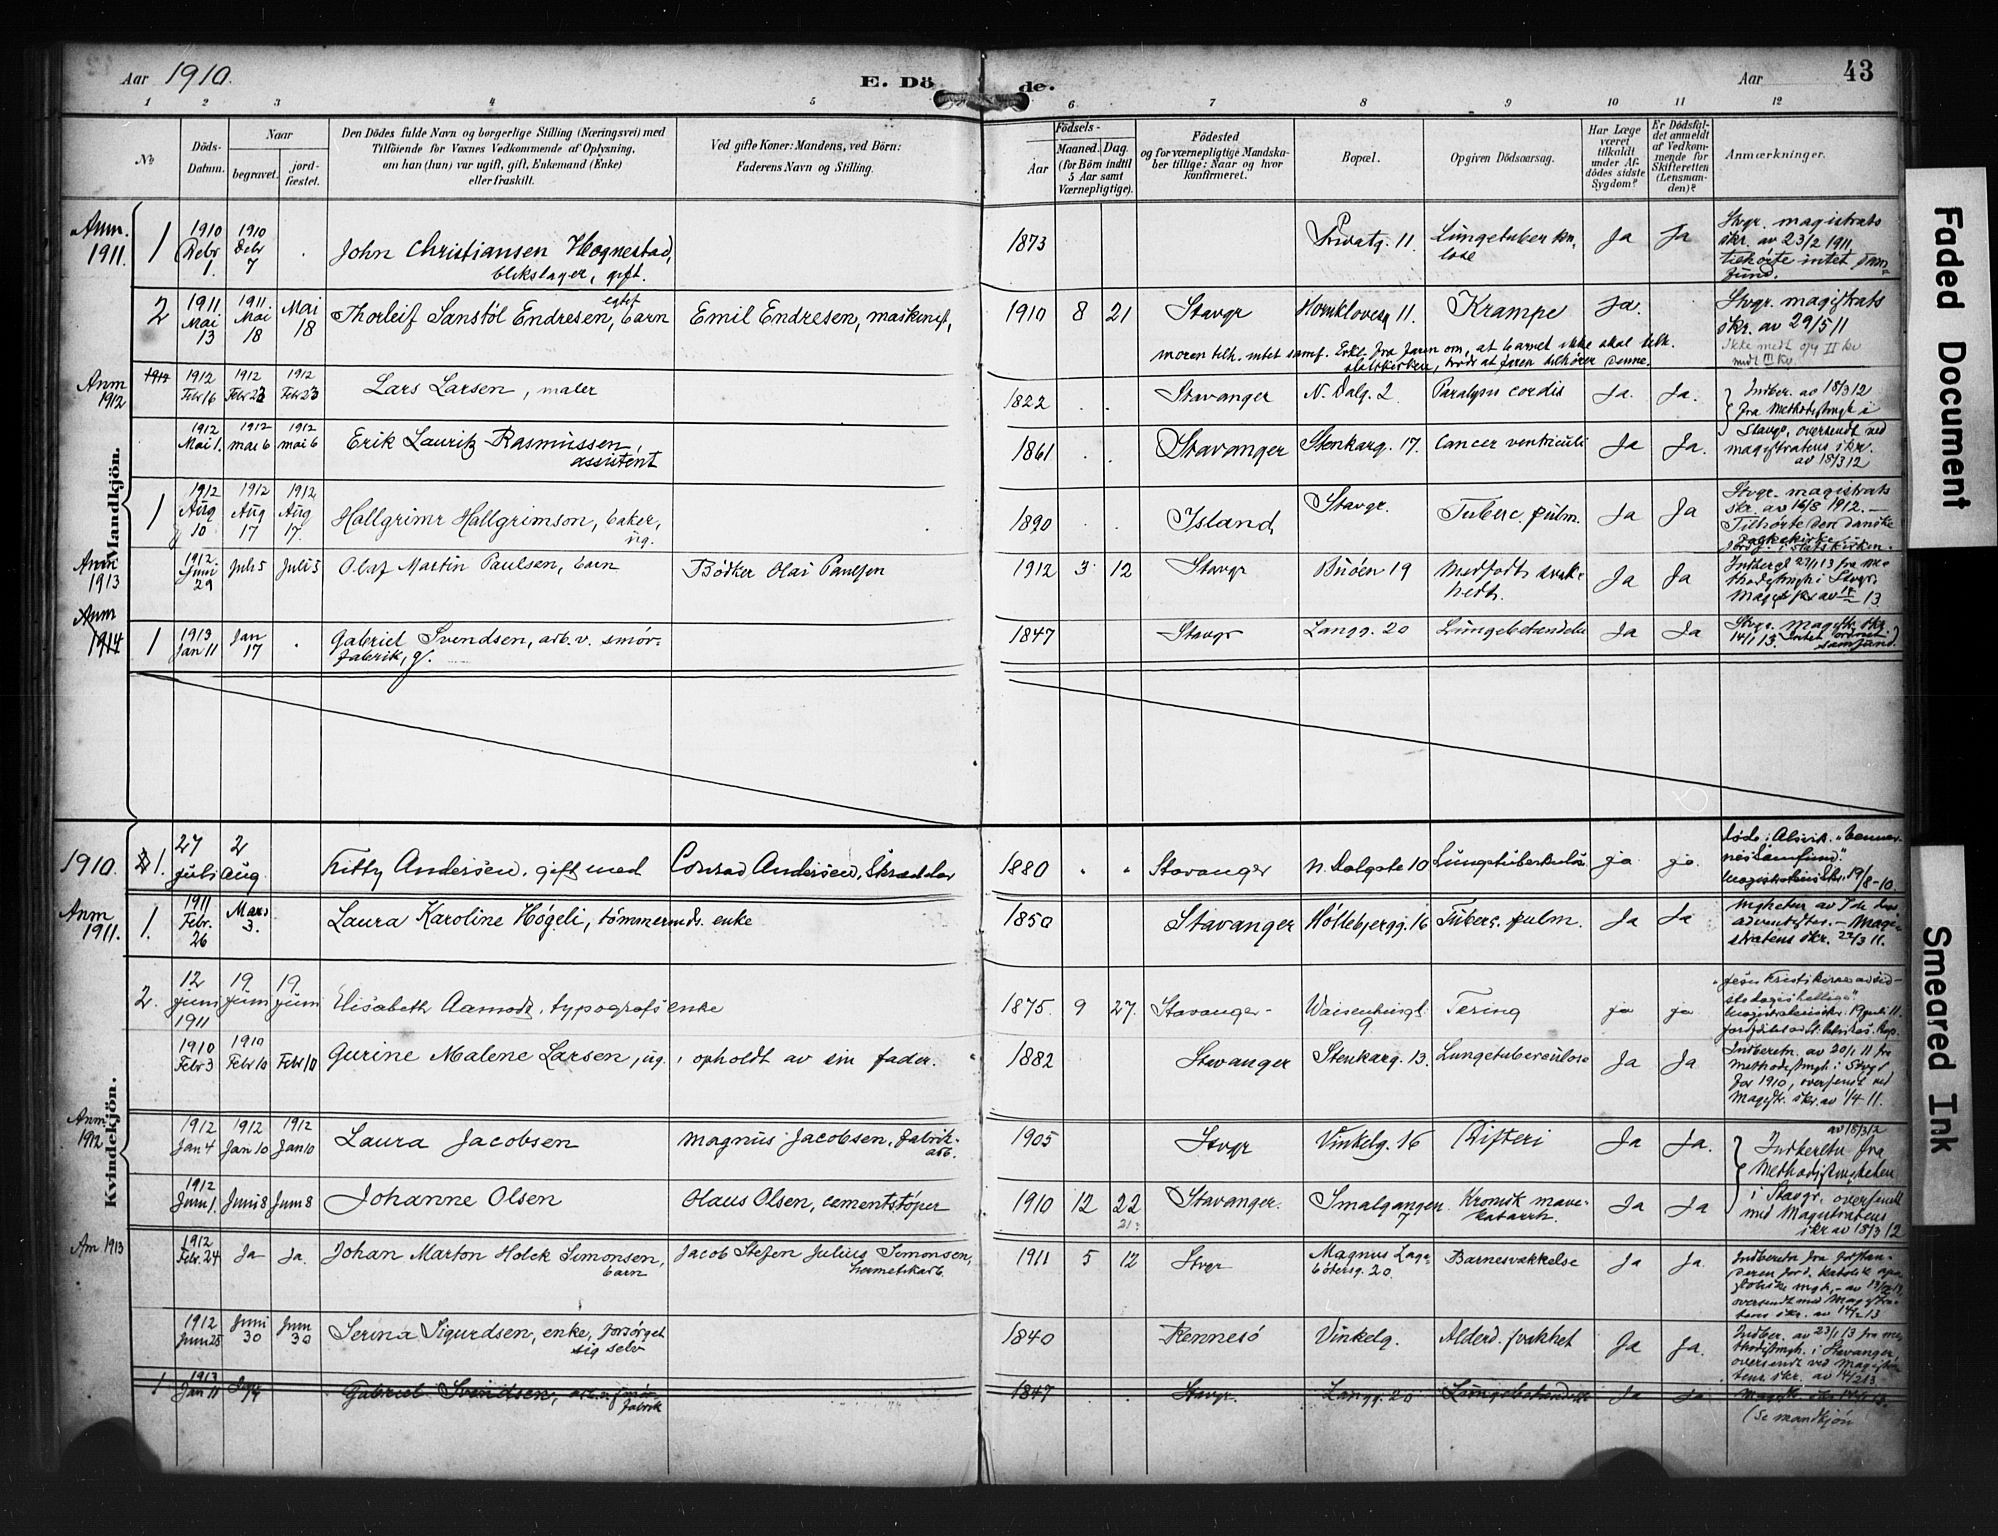 Aar 1910.
E. Dö de.
Aar
43
1 2 3 4 5 6 7 8 9 10 11 12
No
Döds-Datum.
Naar
begravet.
jord-fæstet.
Den Dödes fulde Navn og borgerlige Stilling (Næringsvei) med
Tilföiende for Voxnes Vedkommende af Oplysning,
om han (hun) var ugift, gift, Enkemand (Enke)
eller fraskilt.
Ved gifte Koner: Mandens, ved Börn:
Faderens Navn og Stilling.
Födsels-
Aar
Maaned. Dag.
(for Börn indtil
5 Aar samt
Værnepligtige).
Födested
og for værnepligtige Mandska-
ber tillige: Naar og hvor
konfirmeret.
Bopæl.
Opgiven Dödsaarsag.
Har Læge
været
tilkaldt
under Af-
dödes sidste
Sygdom?
Er Dödsfal-
det anmeldt
af Vedkom-
mende for
Skifteretten
(Lensman-
den)?
Anmærkninger.
Mandkjön.
Anm. 1911. 1 1910 Febr 1. 1910 Febr 7 . John Christiansen Hognestad, blikslager, gift. 1873 Privatg. 11. Lungetuberkulose Ja Ja Stvgr. magistrats skr. av 23/2 1911, tilhørte intet samfund.
2 1911. Mai 13 1911. Mai 18 Mai 18 Thorleif Sanstöl Endresen, egtef barn Emil Endresen, maskinist, 1910 8 21 Stavgr Hornklovesg 11. Krampe Ja. Stvgr. magistrats skr. av 29/5 11
moren tilh. intet samf. Erkl. fra faren om, at barnet ikke skal tilh. statskirken, trods at faren tilhører denne.
Anm 1912 1912 1912 Febr 16 1912 Febr 23 1912 Febr 23 Lars Larsen, maler 1822 . . Stavanger N. Dalg. 2 Paralysis cordis Ja. Ja. Indber. av 18/3 12 fra Methodistmgh i Stavgr, oversendt ved magistratens skr. av 18/3 12
1912 Mai 1. 1912 mai 6 1912 mai 6 Erik Lauritz Rasmussen, assistent 1861 . . Stavanger Stenkarg. 17. Cancer ventriculi Ja Ja.
1 1912 Aug 10 1912 Aug 17 1912 Aug 17. Hallgrimr Hallgrimson, baker, ug. 1890 . . Island, Stavgr. Tuberc. pulm. Ja Ja Stvgr. magistrats skr. av 16/8 1912. — Tilhørte den danske folkekirke.
Anm 1913 1912. Juni 29 Juli 5 Juli 5 Olaf Martin Paulsen, barn Bødker Olai Paulsen 1912 3 12 Stavgr Buöen 19 Medfødt svakhedt. Ja Ja
Anm 1914 1 1913 Jan 11 Jan 17 . Gabriel Svendsen, arb. v. smörfabrik, g. 1847 Stavgr Langg. 20 Lungebetændelse Ja Ja Stvgr. magistr. skr. 14/1 13. Intet ordnet samfund.
Kvindekjön.
1910. 1. 27 juli 2 aug. Kitty Andersen, gift med Conrad Andersen, Skrædder 1880 . . Stavanger N. Dalgate 10 Lungetuberkulose ja ja. Magistratens Skr. 19/8-10.
Anm 1911. 1. 1911 Febr. 26 Mars 3. Laura Karoline Høgeli, tømmermds. enke 1850 Stavanger Hølebjergg. 16 Tuberc. pulm. Ja Ja Magistratens skr. 22/3 11.
2. 12 Juni 1911 19 Juni 19 Juni Elisabeth Aamodt, typografs enke 1875. 9 27. Stavanger Waisenhusgt. 9 Tering ja ja "Jesu Kristi Kirke av sidste dages hellige" Magistratens skr. 19 juli 11.
1910 Febr 3 1910 Febr 10 Febr 10 Gurine Malene Larsen, ug., opholdt av sin fader. 1882 Stavanger Stenkarg. 13. Lungetuberculose Ja Ja Indberetn. av 20/1 11 fra Methodistmgh i Stvgr for 1910, oversendt ved Magistr. skr. av 1/4 11.
Anm 1912 1912 Jan 4 1912 Jan 10 1912 Jan 10 Laura Jacobsen Magnus Jacobsen, fabrikarb. 1905 Stvgr Vinkelg. 16 Difteri Ja Ja. av 18/3/2 Indberetn fra Methodistmenigheten i Stavgr. oversendt med Magistratens skr av 18/3 12
1912 Juni 1. Juni 8 Juni 8 Johanne Olsen Olaus Olsen, cementstøper 1910 12 22 21? Stavanger. Smalgangen 7 Kronisk mavekatarrh. Ja Ja
Am 1913 1912 Febr. 24 Ja Ja. Johan Marton Holck Simonsen, barn Jacob Stefen Julius Simonsen, hermetikarb. 1911 5 12 Stvgr Magnus Lagabötersg. 20. Barnesvakkelse Ja Ja.
1912 Juni 25 Juni 30 Juni 30 Serina Sigurdsen, enke, forsørget sig selv 1840 Rennesö Vinkelg. Alderd. svakhet Ja Ja. Indber. av 23/1 13 fra methodistmgh. i Stavanger, oversendt ved magistratens skr. av 14/2 13
1 1913 Jan 11 Gabriel Svendsen, arb. v. smörfabrik 1847 Stavgr. Langg. 20 Lungebetændelse Ja Ja
(se mandkjön
Faded Document
Smeared Ink